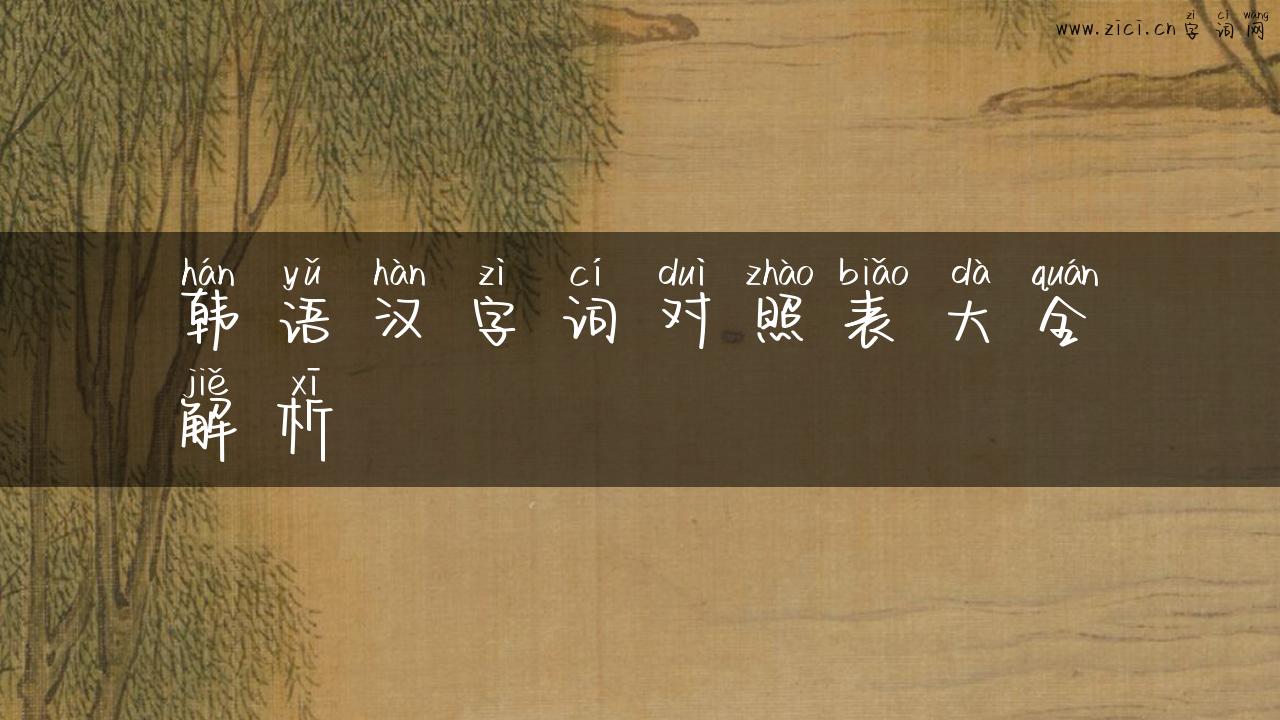 zì cí wǎng
www.zici.cn字词网
hán yǔ hàn zì cí duì zhào biǎo dà quán
韩语汉字词对照表大全
jiě xī
解析